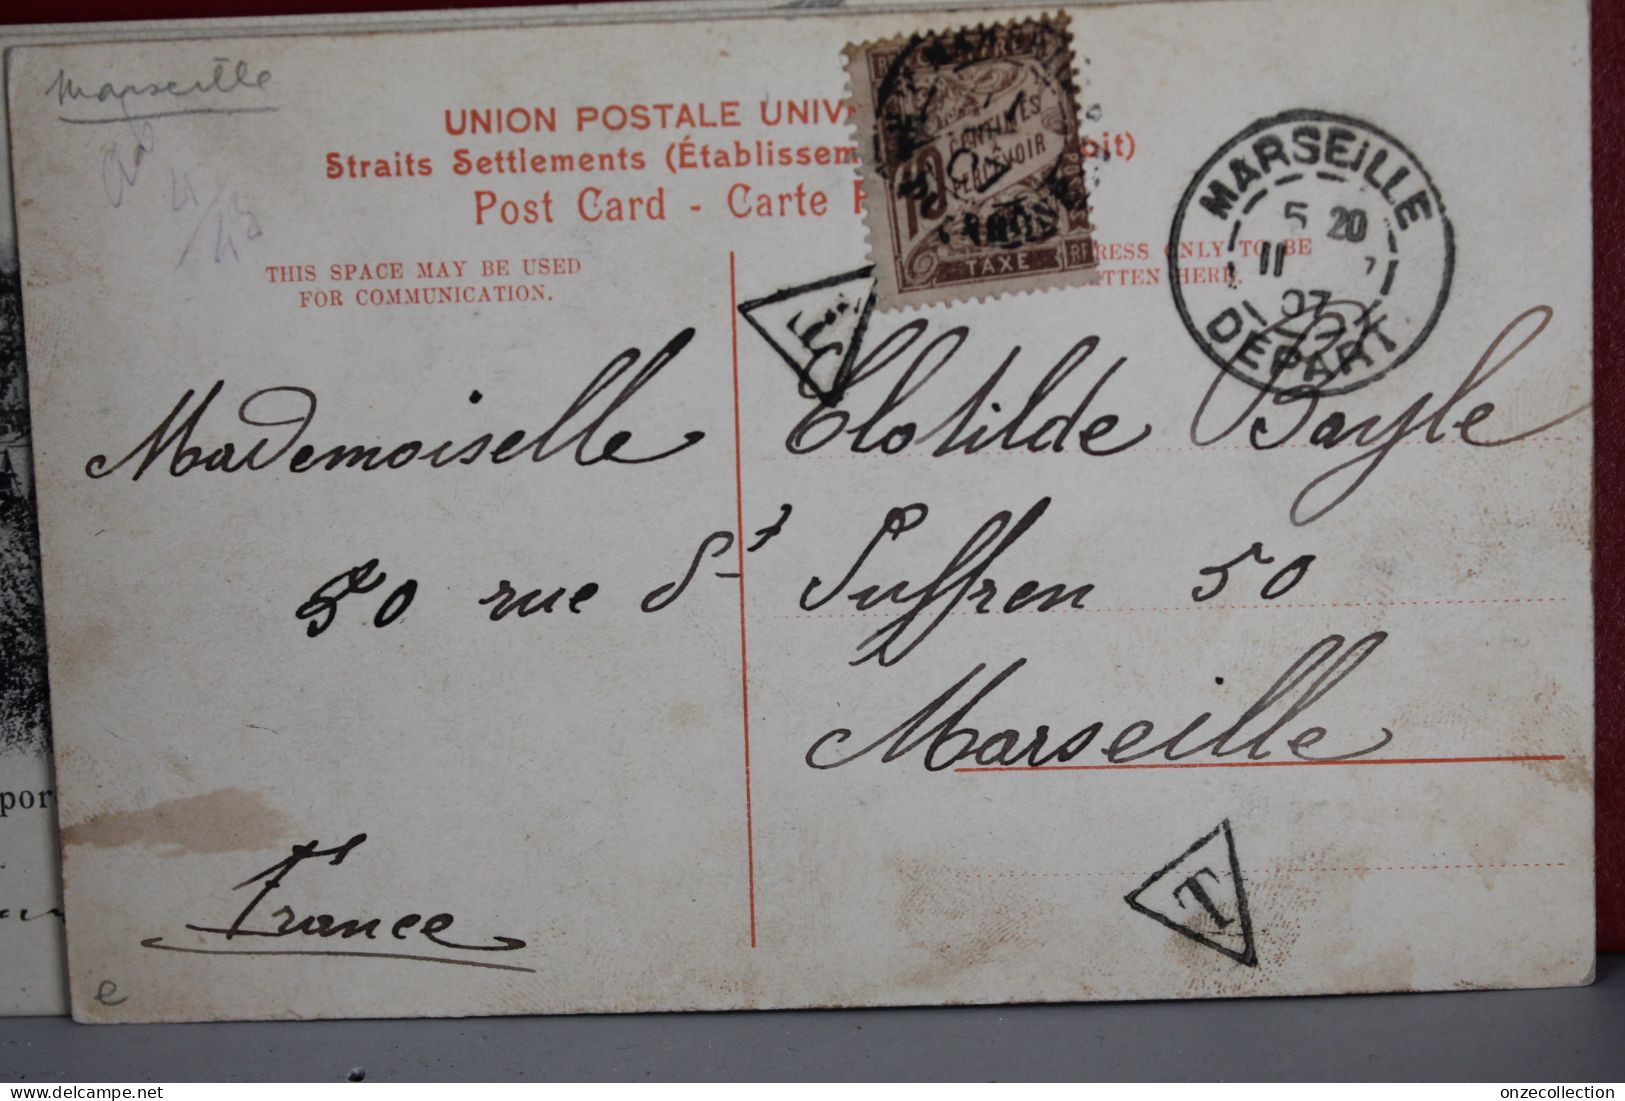 Marseille
UNION POSTALE UNIV
Straits Settlements (Établissem oit)
Post Card - Carte P
THIS SPACE MAY BE USED
FOR COMMUNICATION.
RESS ONLY TO BE
TTEN HERE.
10 CENTIMES
À
PERCEVOIR
TAXE
RF
MARSEILLE
5 20
11 7
07
DEPART
T
Mademoiselle Clotilde Bayle
50 rue St Suffren 50
Marseille
France
T
e
por
onzecollection